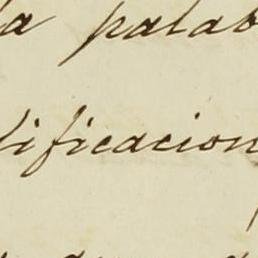 a palab
ificacion